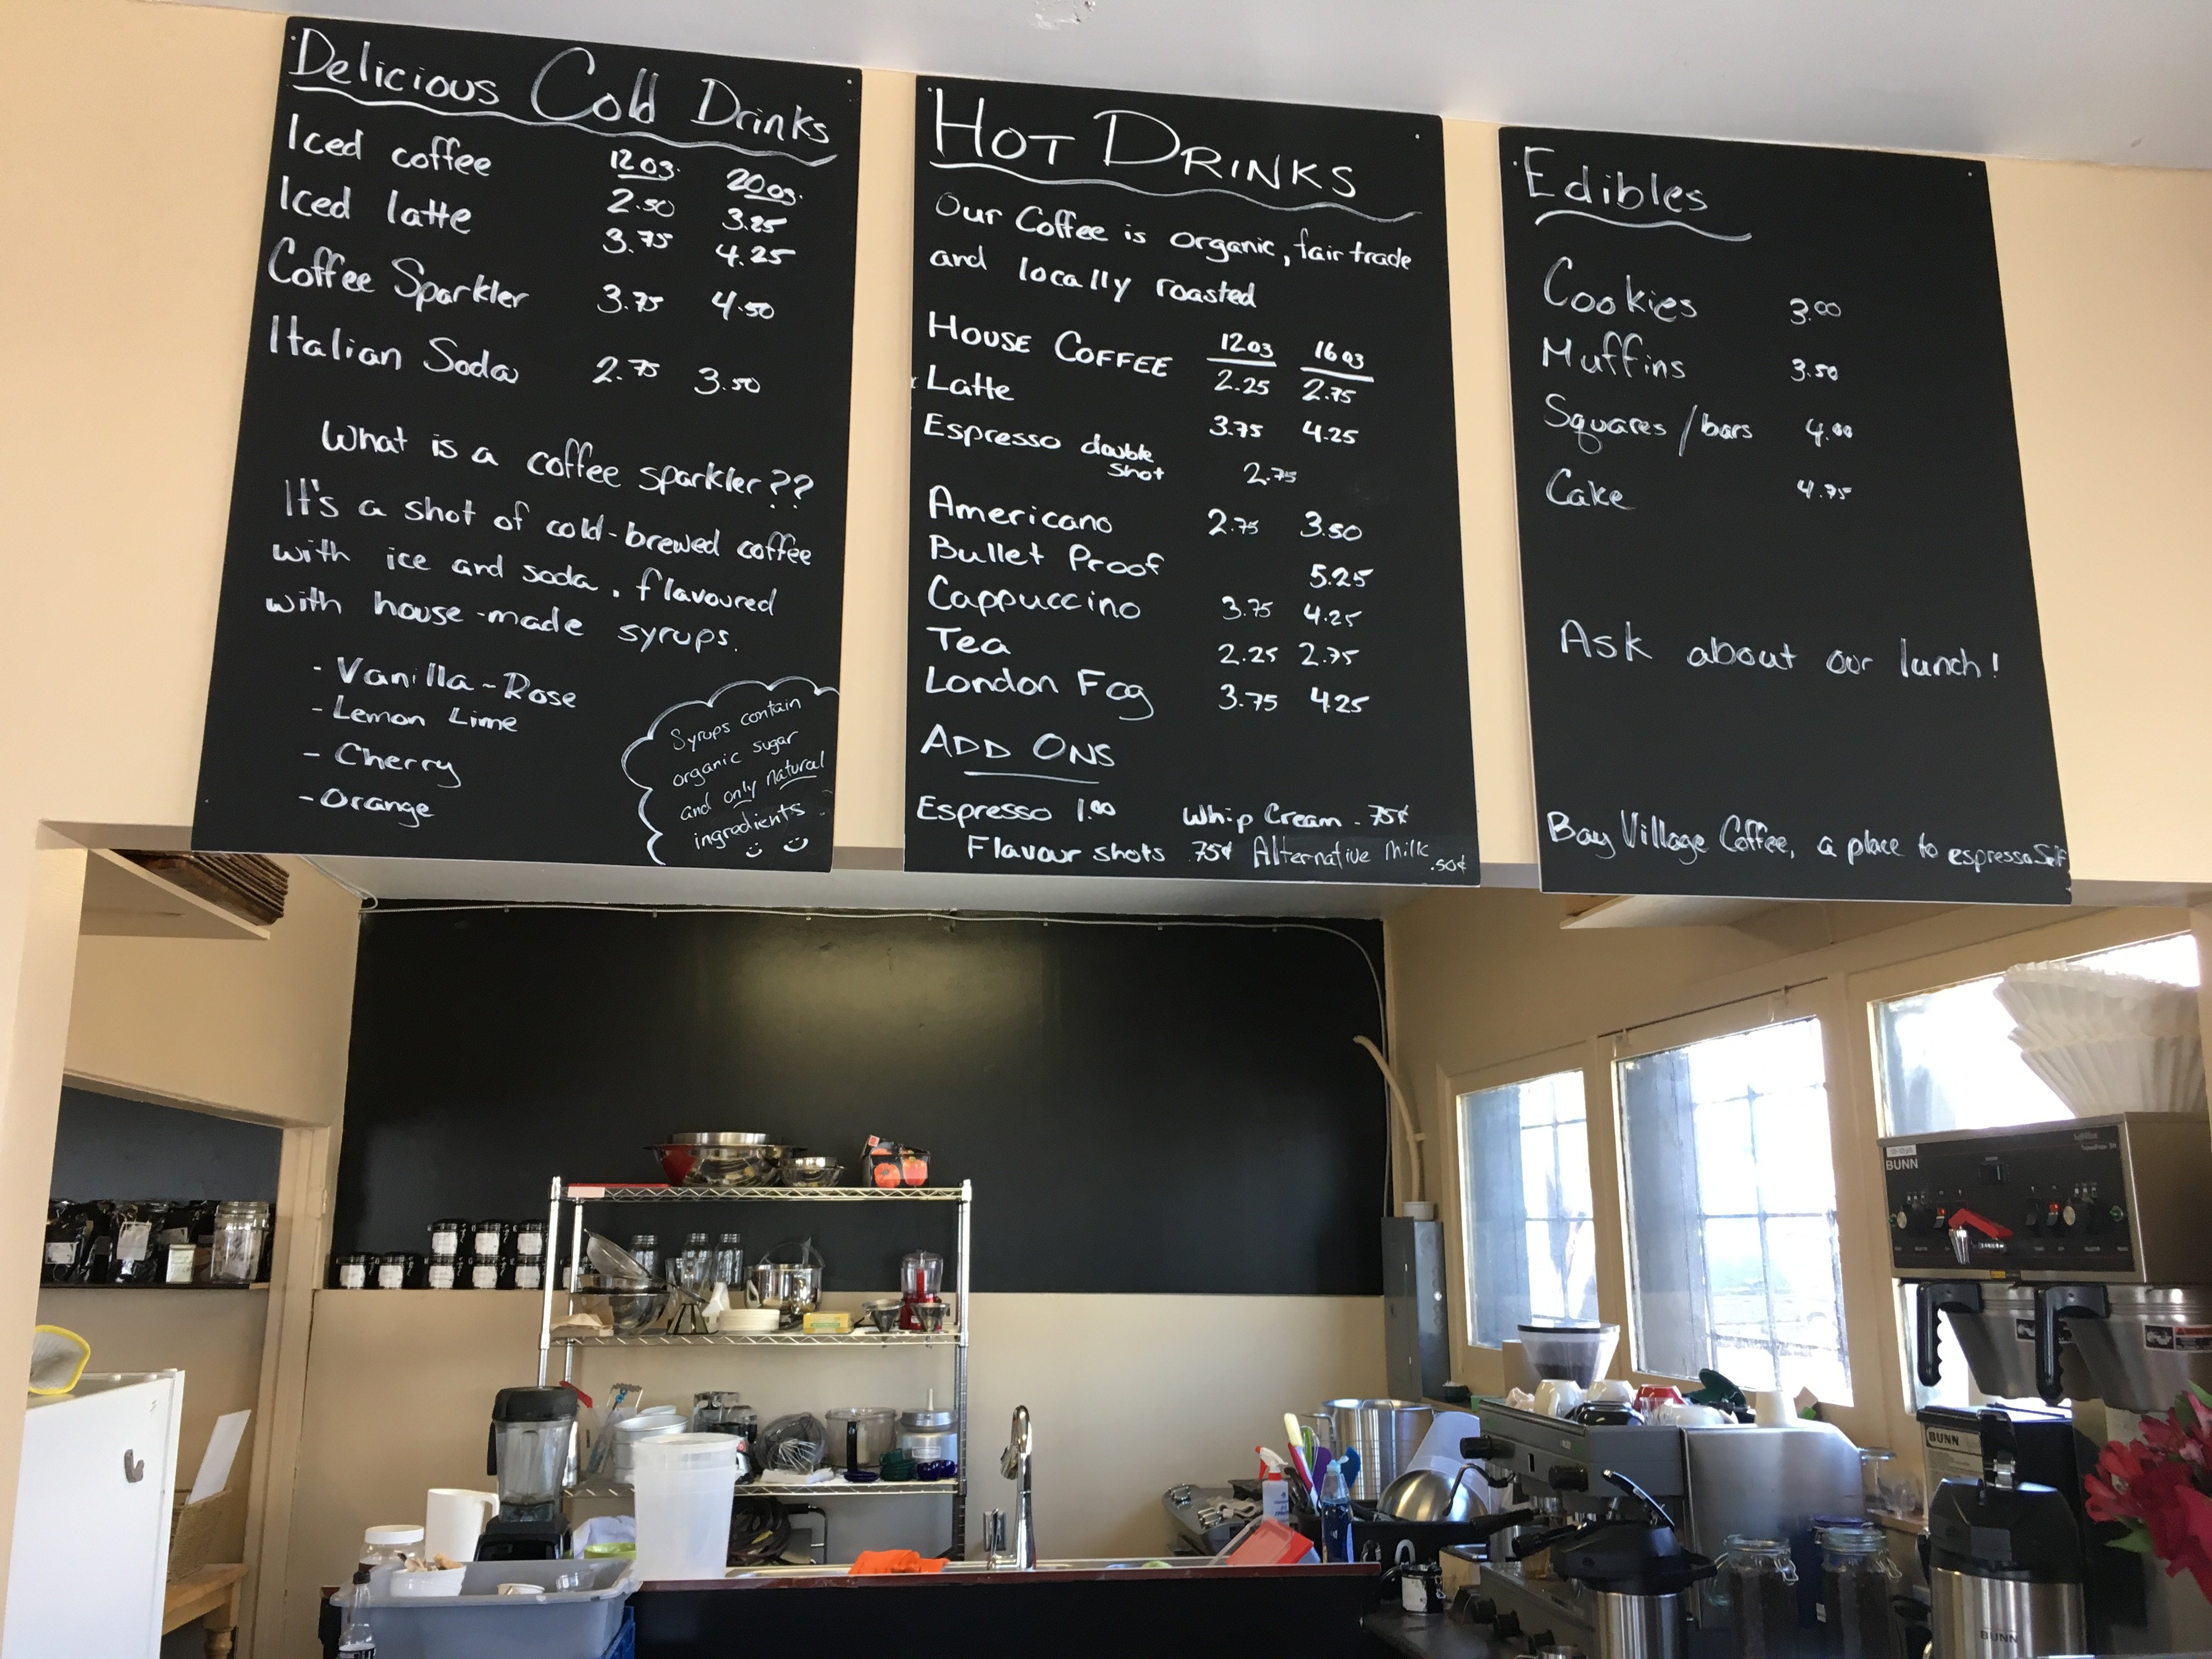 Delicious Cold Drinks
Iced coffee 12oz. 20oz.
2.50 3.25
Iced latte 3.75 4.25
Coffee Sparkler 3.75 4.50
Italian Soda 2.75 3.50
What is a coffee sparkler??
It's a shot of cold-brewed coffee
with ice and soda, flavoured
with house-made syrups.
- Vanilla-Rose
- Lemon Lime
- Cherry
- Orange
Syrups contain
organic sugar
and only natural
ingredients
HOT DRINKS
Our Coffee is organic, fair trade
and locally roasted
HOUSE COFFEE 12oz 16oz
2.25 2.75
Latte 3.75 4.25
Espresso double
shot 2.75
Americano 2.75 3.50
Bullet Proof 5.25
Cappuccino 3.75 4.25
Tea 2.25 2.75
London Fog 3.75 4.25
ADD ONS
Espresso 1.00 Whip Cream - 75¢
Flavour shots .75¢ Alternative Milk .50¢
Edibles
Cookies 3.00
Muffins 3.50
Squares/bars 4.00
Cake 4.75
Ask about our lunch!
Bay Village Coffee, a place to espressoSelf
BUNN
BUNN
BUNN